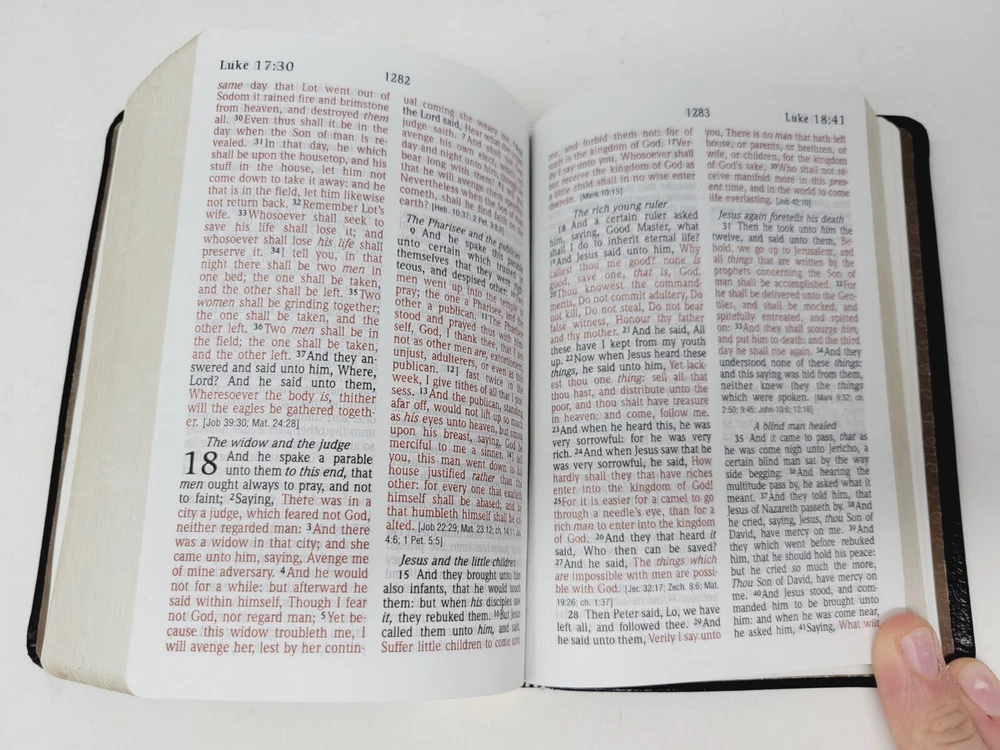 Luke 17:30
1282
same day that Lot went out of
Sodom it rained fire and brimstone
from heaven, and destroyed them
all. 30Even thus shall it be in the
day when the Son of man is re-
vealed. 31In that day, he which
shall be upon the housetop, and his
stuff in the house, let him not
come down to take it away: and he
that is in the field, let him likewise
not return back. 32Remember Lot's
wife. 33Whosoever shall seek to
save his life shall lose it; and
whosoever shall lose his life shall
preserve it. 34I tell you, in that
night there shall be two men in
one bed; the one shall be taken,
and the other shall be left. 35Two
women shall be grinding together;
the one shall be taken, and the
other left. 36Two men shall be in
the field; the one shall be taken,
and the other left. 37And they an-
swered and said unto him, Where,
Lord? And he said unto them,
Wheresoever the body is, thither
will the eagles be gathered togeth-
er. [Job 39:30; Mat. 24:28]
The widow and the judge
18 And he spake a parable
unto them to this end, that
men ought always to pray, and not
to faint; 2Saying, There was in a
city a judge, which feared not God,
neither regarded man: 3And there
was a widow in that city; and she
came unto him, saying, Avenge me
of mine adversary. 4And he would
not for a while: but afterward he
said within himself, Though I fear
not God, nor regard man; 5Yet be-
cause this widow troubleth me, I
will avenge her, lest by her contin-
ual coming she weary me.
the Lord said, Hear what the
judge saith. 7And shall not
avenge his own elect, which
day and night unto him, though
bear long with them? 8I tell
that he will avenge them
Nevertheless when the Son of
cometh, shall he find faith on
earth? [Heb. 10:37; 2 Pet. 3:8,9]
The Pharisee and the publican
9 And he spake this parable
unto certain which trusted in
themselves that they were righ-
teous, and despised other:
men went up into the temple to
pray; the one a Pharisee, and the
other a publican. 11The Pharisee
stood and prayed thus with him-
self, God, I thank thee, that I am
not as other men are, extortioners,
unjust, adulterers, or even as this
publican. 12I fast twice in the
week, I give tithes of all that I pos-
sess. 13And the publican, standing
afar off, would not lift up so much
as his eyes unto heaven, but smote
upon his breast, saying, God be
merciful to me a sinner. 14I tell
you, this man went down to his
house justified rather than the
other: for every one that exalteth
himself shall be abased; and he
that humbleth himself shall be ex-
alted. [Job 22:29; Mat. 23:12; ch. 14:11; Jas.
4:6; 1 Pet. 5:5]
Jesus and the little children
15 And they brought unto him
also infants, that he would touch
them: but when his disciples saw
it, they rebuked them. 16But Jesus
called them unto him, and said,
Suffer little children to come unto
1283
Luke 18:41
me, and forbid them not: for of
such is the kingdom of God. 17Ver-
ily I say unto you, Whosoever shall
not receive the kingdom of God as
a little child shall in no wise enter
therein. [Mark 10:15]
The rich young ruler
18 And a certain ruler asked
him, saying, Good Master, what
shall I do to inherit eternal life?
19And Jesus said unto him, Why
callest thou me good? none is
good, save one, that is, God.
20Thou knowest the command-
ments, Do not commit adultery, Do
not kill, Do not steal, Do not bear
false witness, Honour thy father
and thy mother. 21And he said, All
these have I kept from my youth
up. 22Now when Jesus heard these
things, he said unto him, Yet lack-
est thou one thing: sell all that
thou hast, and distribute unto the
poor, and thou shalt have treasure
in heaven: and come, follow me.
23And when he heard this, he was
very sorrowful: for he was very
rich. 24And when Jesus saw that he
was very sorrowful, he said, How
hardly shall they that have riches
enter into the kingdom of God!
25For it is easier for a camel to go
through a needle's eye, than for a
rich man to enter into the kingdom
of God. 26And they that heard it
said, Who then can be saved?
27And he said, The things which
are impossible with men are possi-
ble with God. [Jer. 32:17; Zech. 8:6; Mat.
19:26; ch. 1:37]
28 Then Peter said, Lo, we have
left all, and followed thee. 29And
he said unto them, Verily I say unto
you, There is no man that hath left
house, or parents, or brethren, or
wife, or children, for the kingdom
of God's sake, 30Who shall not re-
ceive manifold more in this pres-
ent time, and in the world to come
life everlasting. [Job 42:10]
Jesus again foretells his death
31 Then he took unto him the
twelve, and said unto them, Be-
hold, we go up to Jerusalem, and
all things that are written by the
prophets concerning the Son of
man shall be accomplished. 32For
he shall be delivered unto the Gen-
tiles, and shall be mocked, and
spitefully entreated, and spitted
on: 33And they shall scourge him,
and put him to death: and the third
day he shall rise again. 34And they
understood none of these things:
and this saying was hid from them,
neither knew they the things
which were spoken. [Mark 9:32; ch.
2:50; 9:45; John 10:6; 12:16]
A blind man healed
35 And it came to pass, that as
he was come nigh unto Jericho, a
certain blind man sat by the way
side begging: 36And hearing the
multitude pass by, he asked what it
meant. 37And they told him, that
Jesus of Nazareth passeth by. 38And
he cried, saying, Jesus, thou Son of
David, have mercy on me. 39And
they which went before rebuked
him, that he should hold his peace:
but he cried so much the more,
Thou Son of David, have mercy on
me. 40And Jesus stood, and com-
manded him to be brought unto
him: and when he was come near,
he asked him, 41Saying, What wilt